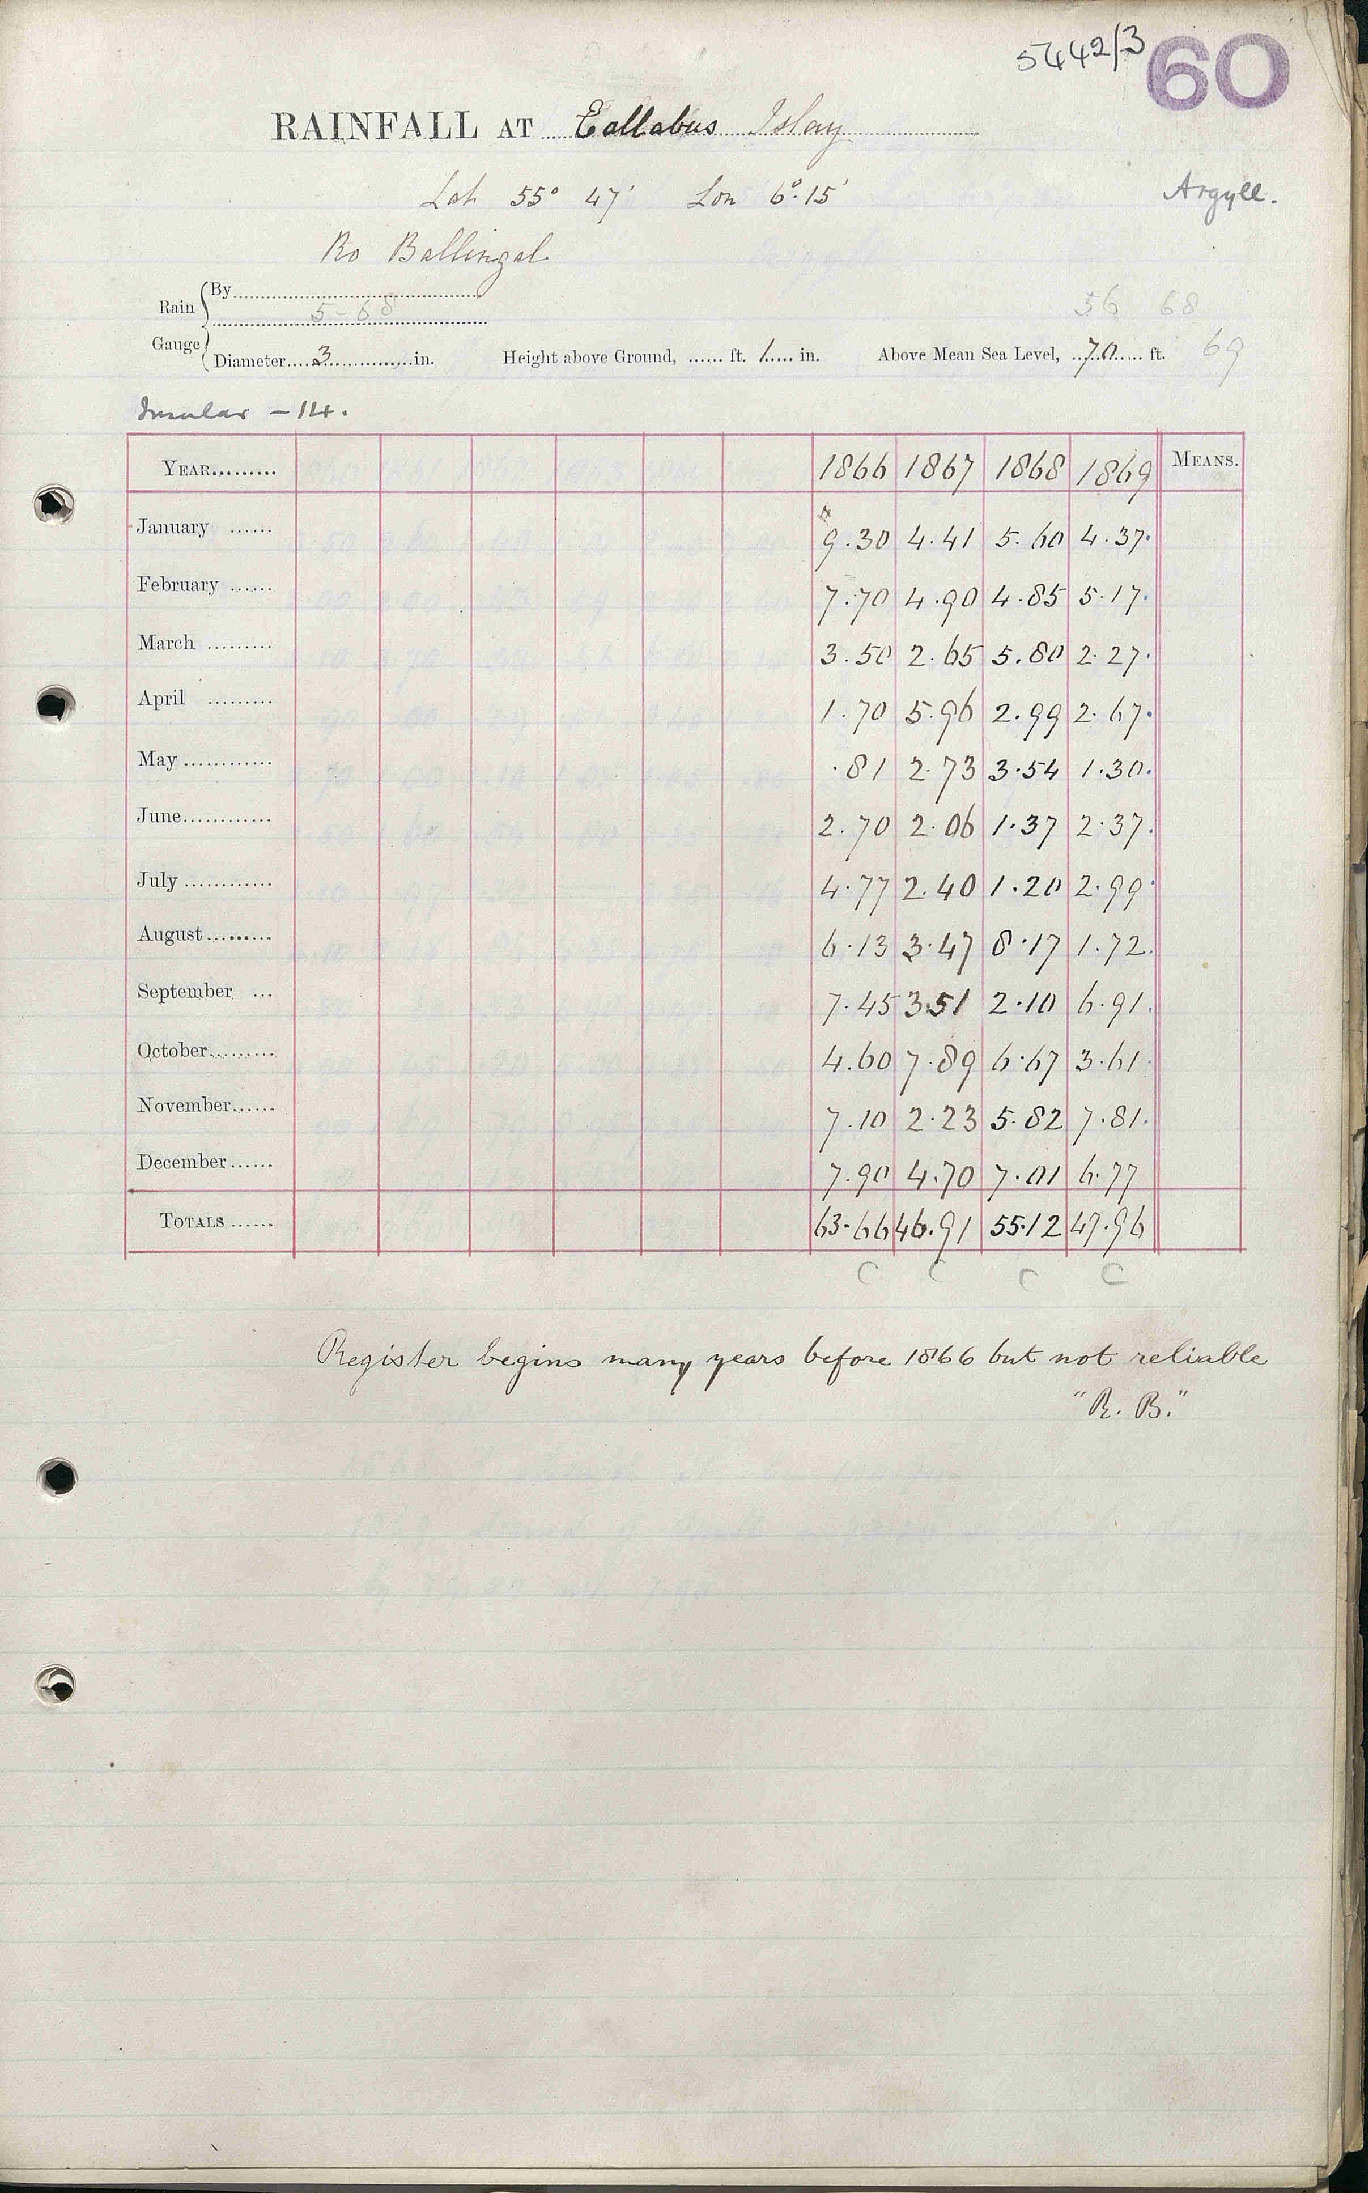 5442/3 60
RAINFALL AT Eallabus Islay
Lat 55° 47' Lon 6° 15'
Argyll.
Ro Ballingal
Rain Gauge
By
5-68
56 68
Diameter 3 in. Height above Ground, ...... ft. 1 in. Above Mean Sea Level, 70 ft. 69
Insular - 14.
YEAR......... 1866 1867 1868 1869 MEANS.
January ...... 9.30 4.41 5.60 4.37.
February ...... 7.70 4.90 4.85 5.17.
March ......... 3.50 2.65 5.80 2.27.
April ......... 1.70 5.96 2.99 2.67.
May ............ .81 2.73 3.54 1.30.
June............ 2.70 2.06 1.37 2.37.
July ............ 4.77 2.40 1.20 2.99.
August......... 6.13 3.47 8.17 1.72.
September ... 7.45 3.51 2.10 6.91.
October......... 4.60 7.89 6.67 3.61.
November...... 7.10 2.23 5.82 7.81.
December...... 7.90 4.70 7.01 6.77
TOTALS ...... 63.66 46.91 55.12 47.96
C C C C
Register begins many years before 1866 but not reliable
"R. B."